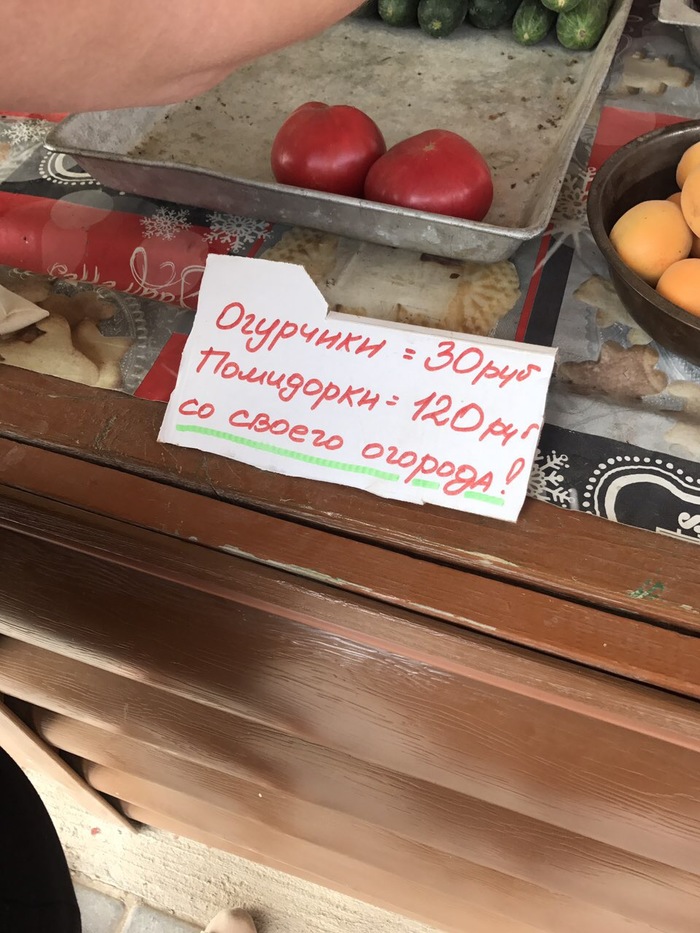 Огурчики = 30руб
Помидорки = 120руб
со своего огорода!